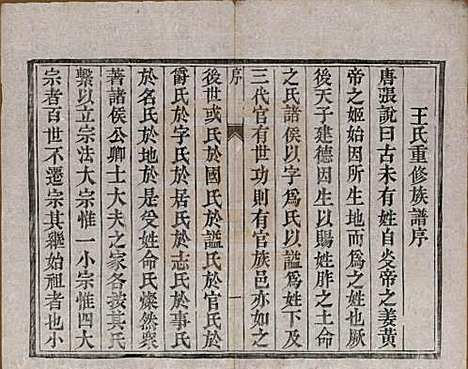 王氏重修族譜序
唐張說曰古未有姓自炎帝之姜黃
帝之姬始因所生地而爲之姓也厥
後天子建德因生以賜姓胙之土命
之氏諸侯以字爲氏以謚爲氏下及
三代官有世功則有官族邑亦如之
序
一
後世或氏於國氏於謚氏於官氏於
爵氏於字氏於居氏於志氏於事氏
於名氏於地於是受姓命氏燦然與
著諸侯公卿士大夫之家各菽其氏
繫以立宗法大宗惟一小宗惟四大
宗者百世不遷宗其繼始祖者也小